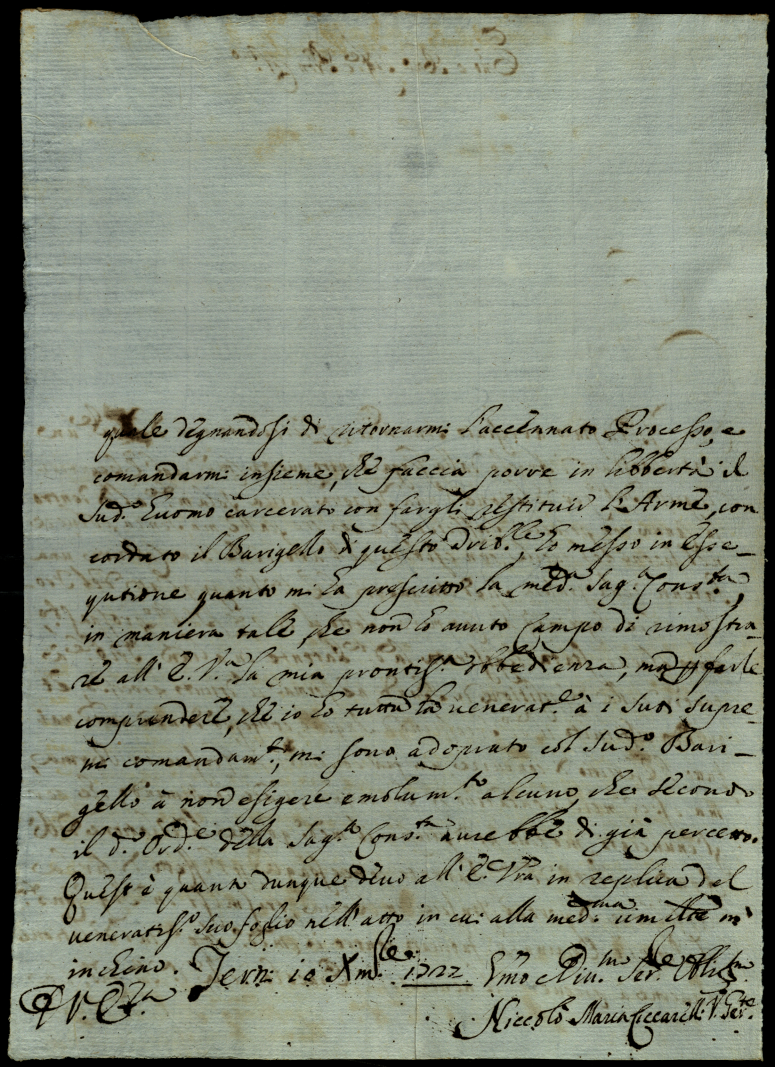 quale degnandosi di ritornarmi l'accennato Processo, e
comandarmi insieme, che faccia porre in libbertà il
sud.o huomo carcerato con fargli restituir le Arme, con
cordato il Barigello di questo Trib.le, hò messo in esse-
qutione quanto mi hà prescritto la med.a Sag.a Cons.ta,
in maniera tale che non hò auuto Campo di rimostra-
re all' E. V.a la mia prontis.a obbedienza, ma farle
comprendere, che io hò tutta la venerat.e à i suoi supre-
mi comandam.ti, mi sono adoprato col sud.o Bari-
gello à non esigere emolum.to alcuno, che secondo
il d.o Ord.e della Sag.a Cons.ta aurebbe di già percetto.
Quest'è quanto dunque deuo all' E. Vra in replica del
veneratis.o suo foglio nell'atto in cui alla med.ma umilte m'
inchino. Terni 10 Xmbre 1722
Niccolò Maria Ciccarelli V. Ger.te